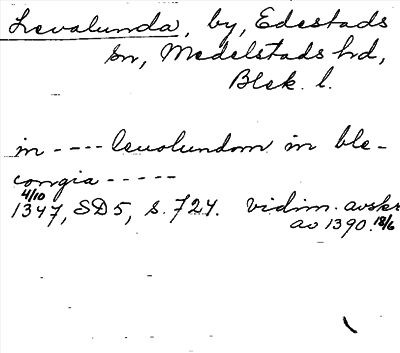 Levalunda, by, Edestads
sn, Medelstads hd,
Blek. l.
in ---- leuolundom in ble-
congia -----
4/10
1347, SD5, s. 724. vidim. avskr
av 1390. 18/6